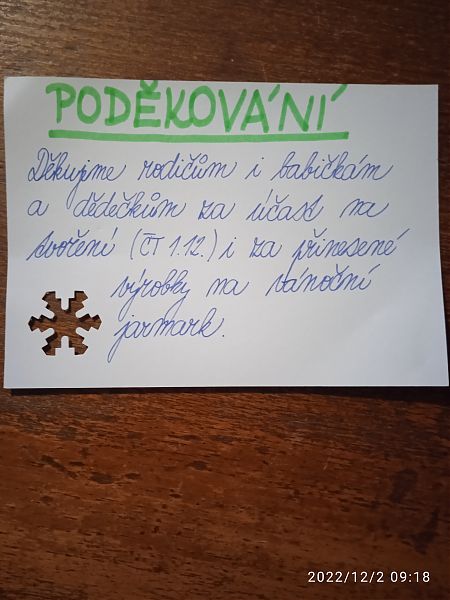 PODĚKOVÁNÍ
Děkujeme rodičům i babičkám
a dědečkům za účast na
tvoření (ČT 1.12.) i za přinesené
výrobky na vánoční
jarmark.
2022/12/2 09:18